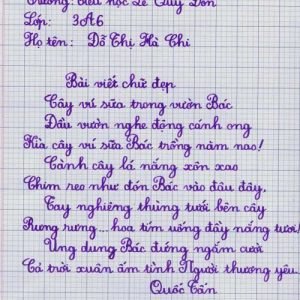 Trường: Tiểu học Lê Quý Đôn
Lớp: 3A6
Họ tên: Dỗ Thị Hà Chi
Bài viết chữ đẹp
Cây ví sữa trong vườn Bác
Dẩu vườn nghe động cánh ong
Kìa cây ví sữa Bác trồng năm nao!
Cành cây lá nắng xôn xao
Chim reo như đón Bác vào đâu đây,
Tay nghiêng thùng tưới bên cây
Rưng rưng... hoa tím uống đầy nắng tươi!
Ung dung Bác đứng ngắm cười
Cả trời xuân ấm tình Người thương yêu.
Quốc Tấn